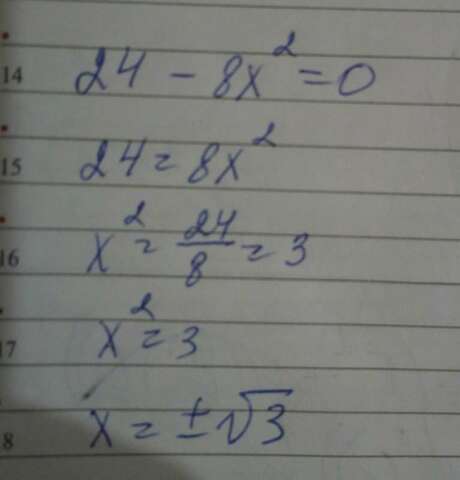 14 24 - 8x² = 0
15 24 = 8x²
16 x² = 24/8 = 3
17 x² = 3
8 x = ±√3